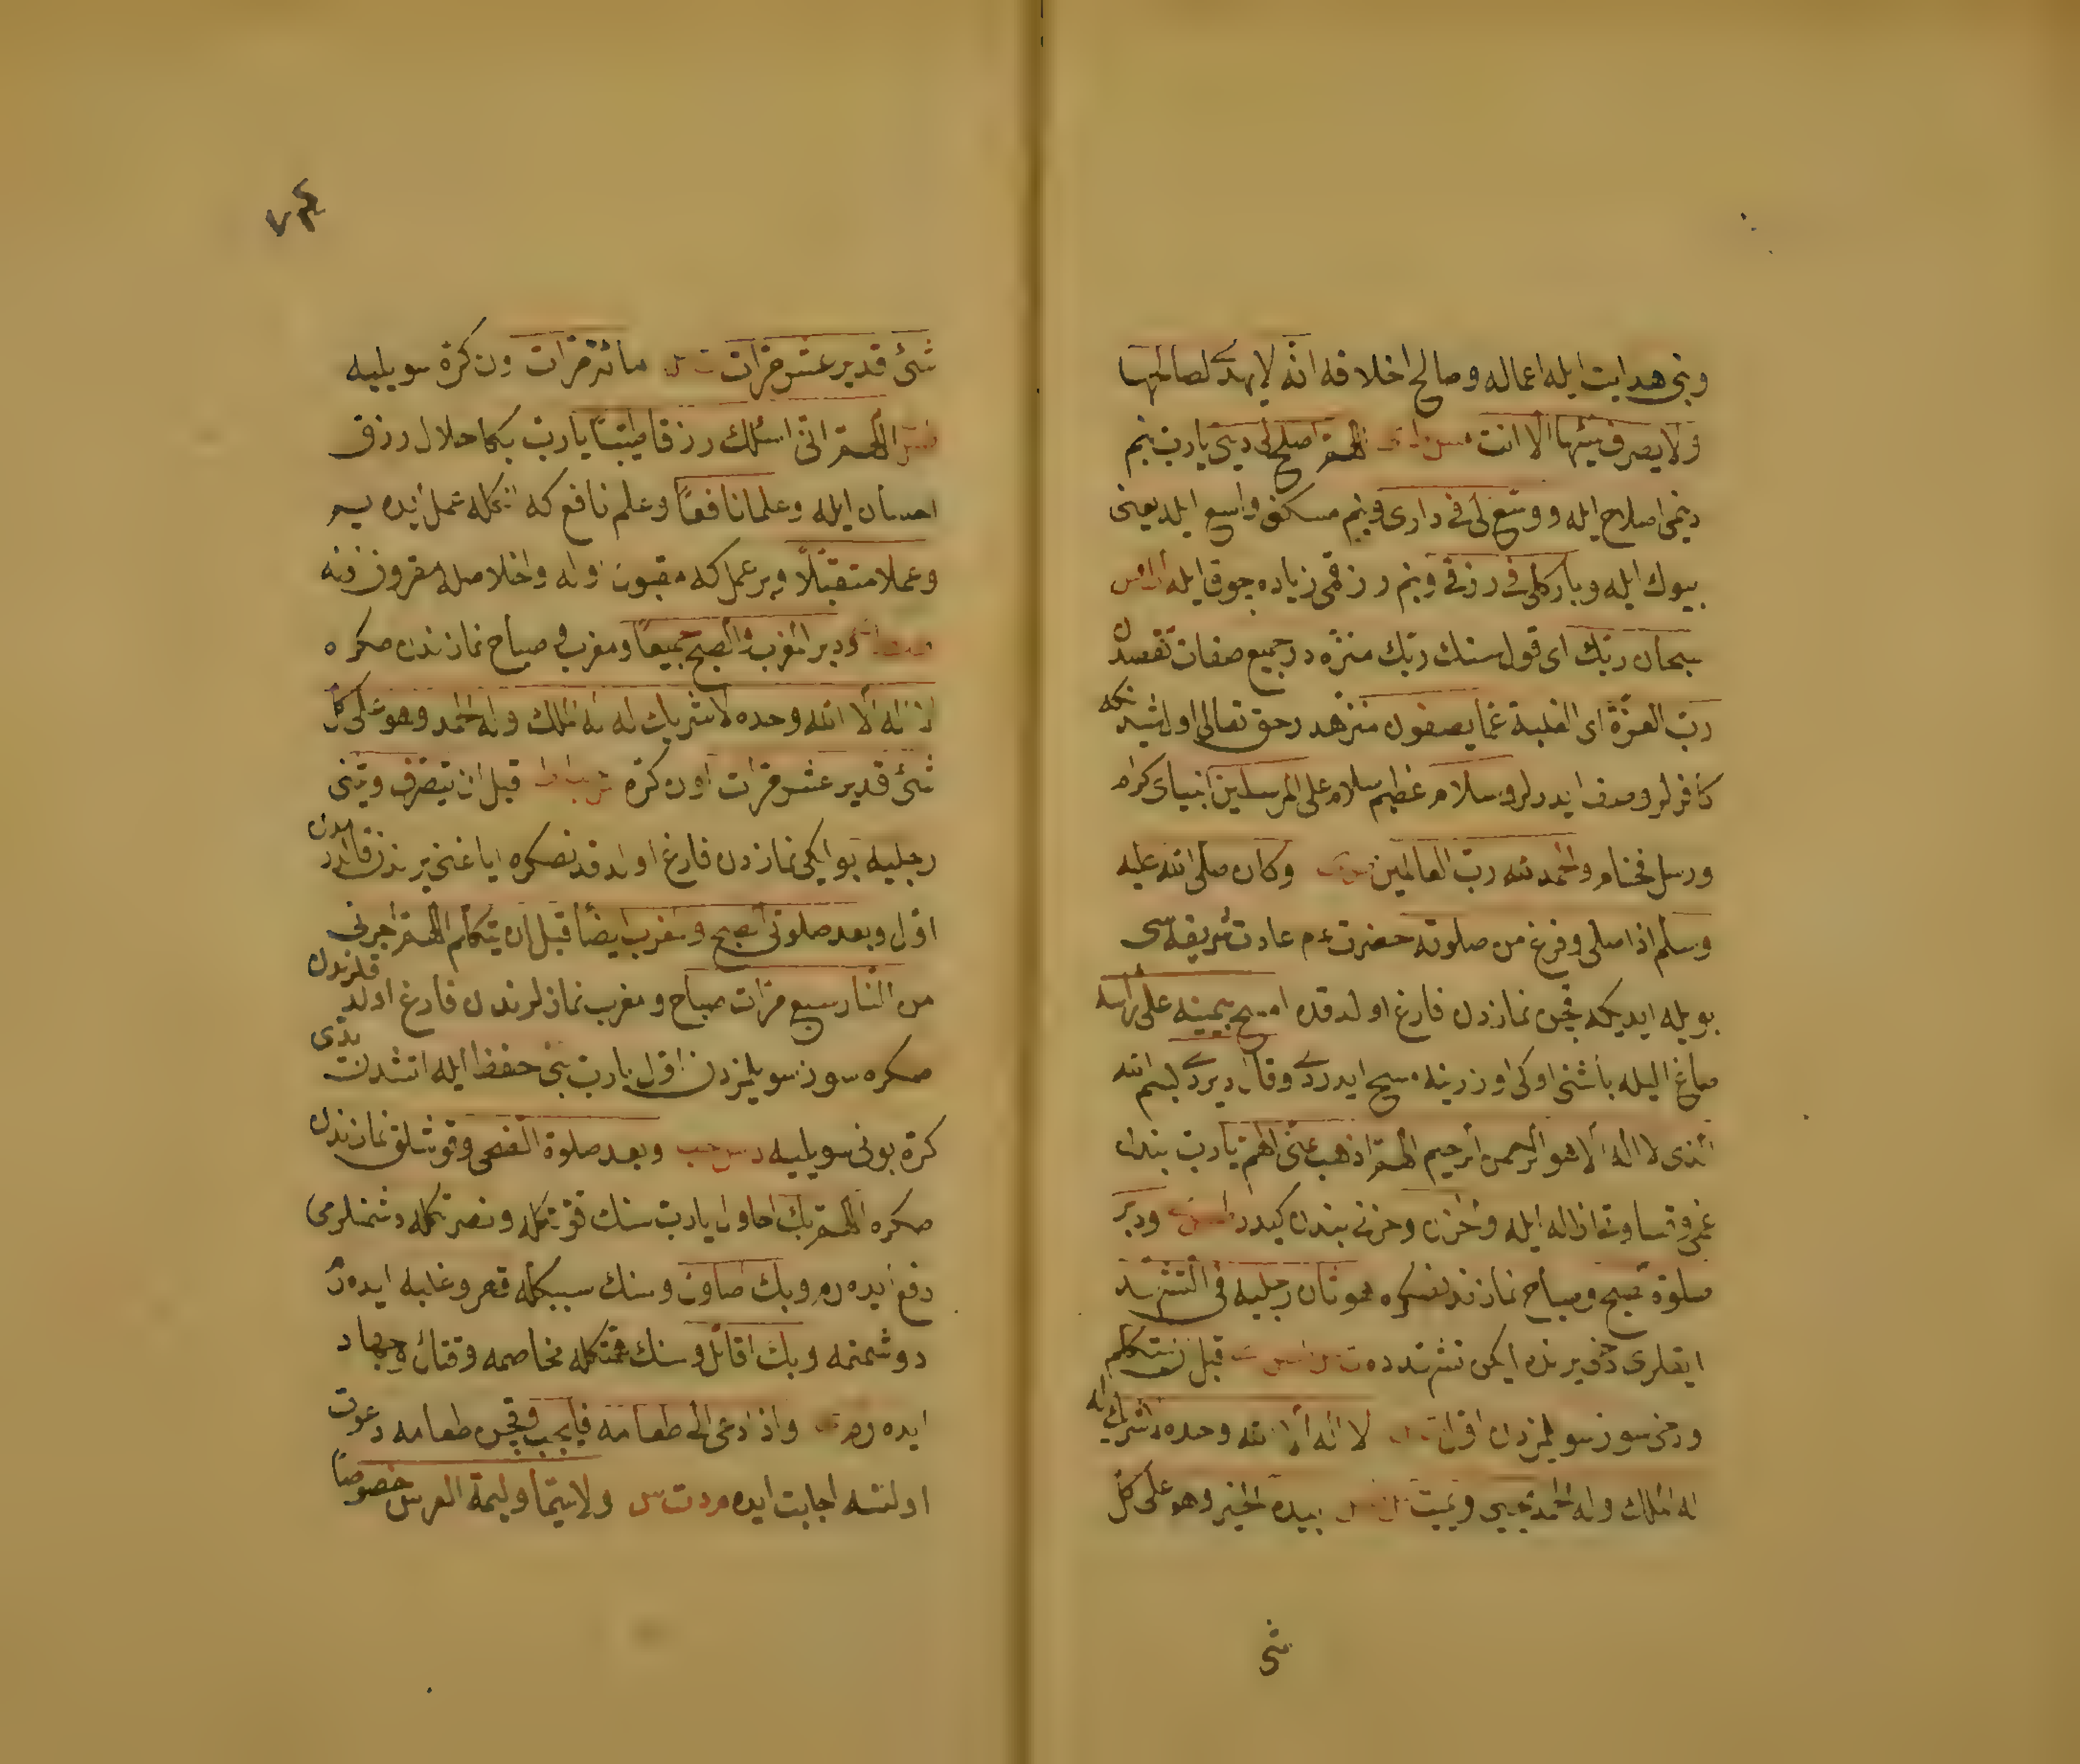 وبنى هدايت ايله اعماله وصالح اخلاقه انه لا يهدى لصالحها
ولا يصرف سيئها الا انت اللهم اصلح لى دينى يارب بنم
دينمى اصلاح ايله ووسع لى فى دارى وبنم مسكنم واسع ايله يعنى
بيوك ايله وبارك لى فى رزقى وبنم رزقمى زياده چوق ايله
سبحان ربك اى قول سنك ربك منزه در جميع صفات نقصدن
رب العزة اى الغلبة عما يصفون منزهدر حق تعالى اول شيدنكه
كافرلر وصف ايدرلر وسلام عظيم سلام على المرسلين انبياى كرام
ورسل فخام والحمد لله رب العالمين وكان صلى الله عليه
وسلم اذا صلى وفرغ من صلوته حضرت عم عادت شريفه سى
بويله ايديكه قچن نمازدن فارغ اولدقده مسح بيمينه على رأسه
صاغ اليله باشنى اوكى اوزرينه مسح ايدردى وقال ديردى بسم الله
الذى لا اله الا هو الرحمن الرحيم اللهم اذهب عنى الهم يارب بندن
غمى وقساوتى ازاله ايله والحزن وحزنى بندن كيدر ودبر
صلوة الصبح وصباح نمازندنصكره وهو ثان رجليه فى التشهد
ايقلرى دخى يرنده ايكن تشهدده قبل ان يتكلم
ودخى سوز سويلمزدن اول لا اله الا الله وحده لا شريك له
له الملك وله الحمد يحيى ويميت بيده الخير وهو على كل
شى
٧٤
شئ قدير عشر مرات مائة مرات ون كرة سويليه
اللهم انى اسئلك رزقا طيبا يارب بكا حلال رزق
احسان ايله وعلما نافعا وعلم نافع كه انكله عمل ايده يم
وعملا متقبلا وبر عمل كه مقبول اوله واخلاصله مقرون اوله
ودبر المغرب والصبح جميعا ومغرب وصباح نمازندن صكره
لا اله الا الله وحده لا شريك له له الملك وله الحمد وهو على كل
شئ قدير عشر مرات اون كرة قبل ان ينصرف ويثنى
رجليه بو ايكى نمازدن فارغ اولدقدنصكره اياغنى يرندن قالدرمدن
اول وبعد صلوتى الصبح والمغرب ايضا قبل ان يتكلم اللهم اجرنى
من النار سبع مرات صباح ومغرب نمازلرندن فارغ اولدقلرندن
صكره سوز سويلمزدن اول يارب بنى حفظ ايله اتشدن يدى
كرة بونى سويليه وبعد صلوة الضحى وقوشلق نمازندن
صكره اللهم بك احاول يارب سنك قوتكله ونصرتكله دشمنلرمى
دفع ايده رم وبك اصاول وسنك سببكله قهر وغلبه ايده رم
دوشمنمه وبك اقاتل وسنك همتكله مخاصمه وقتال وجهاد
ايده رم واذا دعى الى طعامه فليجب وقچن طعامه دعوت
اولنسه اجابت ايده م د ت س ولا سيما وليمة العرس خصوصا